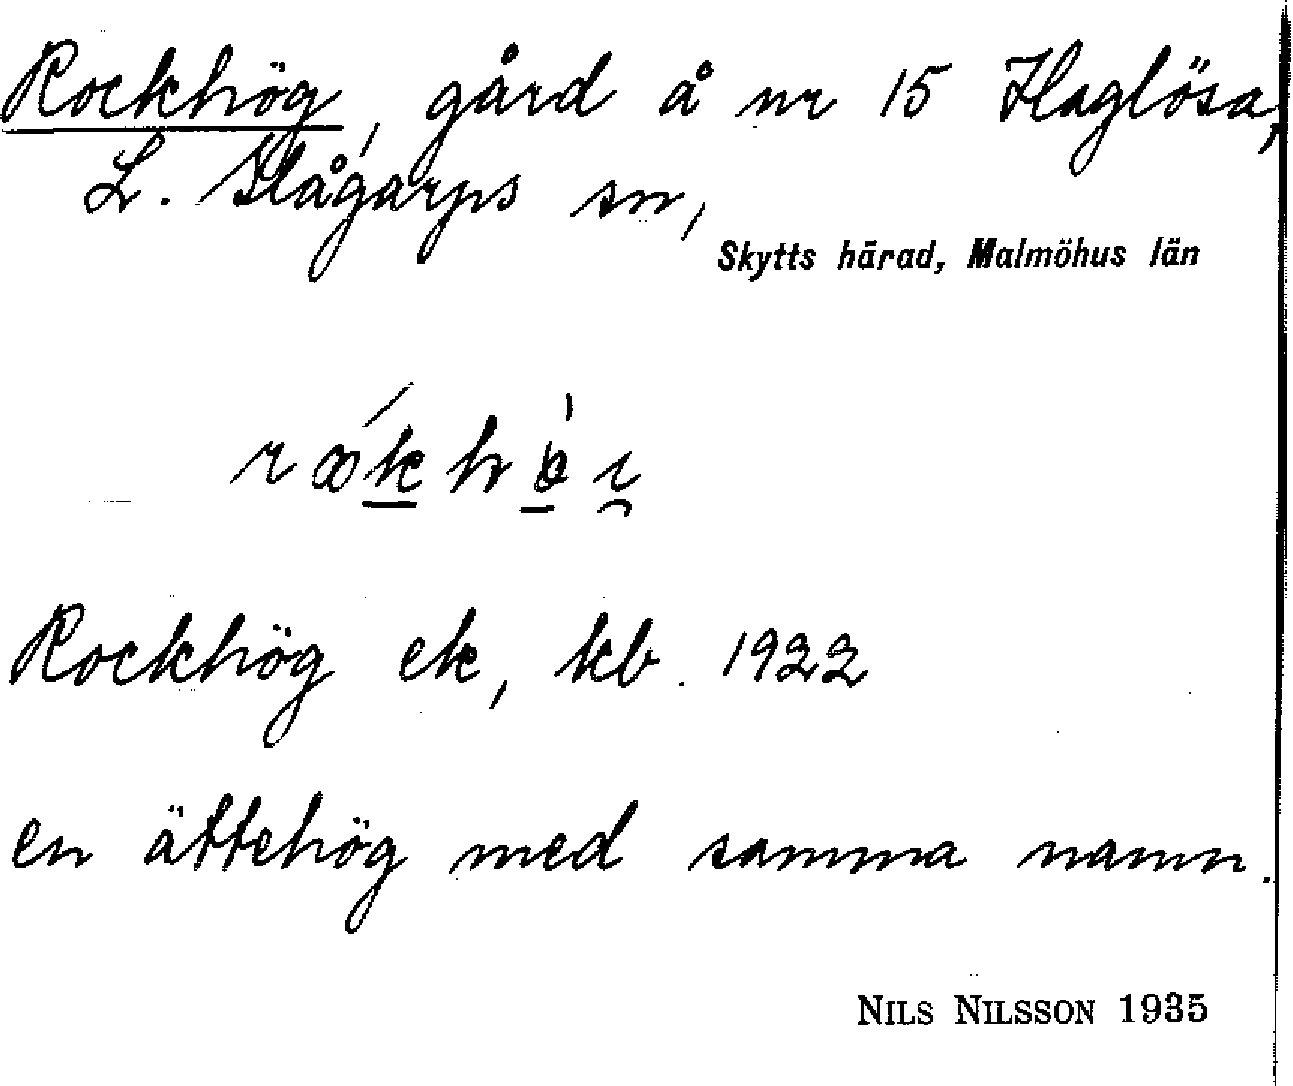 Rockhög, gård å nr 15 Haglösa,
L. Slågarps sn,
Skytts härad, Malmöhus län
Rockhög ek, kb. 1922
en ättehög med samma namn.
NILS NILSSON 1935